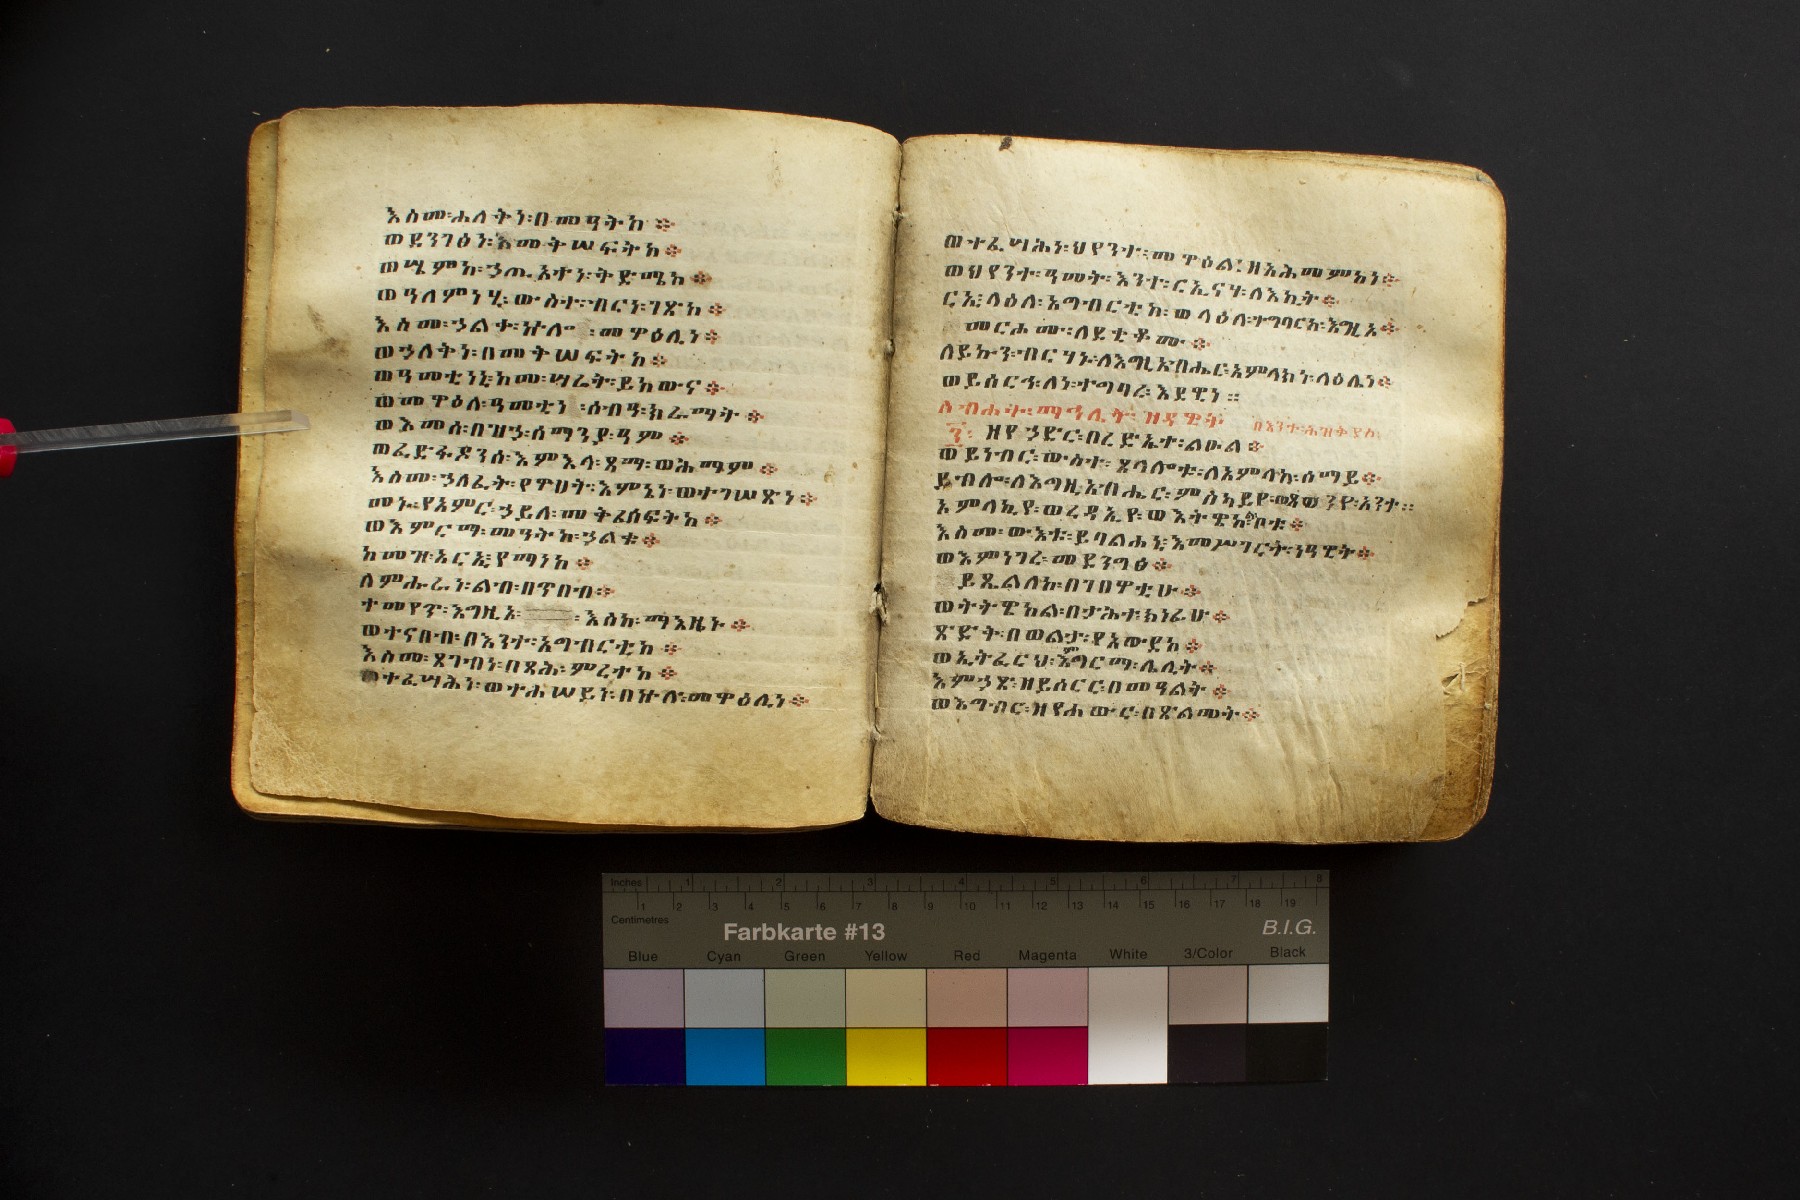 እስመ፡ሐለቅነ፡በመዓትከ፨
ወደንገፅነ፡እመቅሠፍትከ፨
ወሤምከ፡ኃጢአተነ፡ቅድሜከ፨
ወዓለምነሂ፡ውስተ፡ብርሃነ፡ገጽከ፨
እስመ፡ኃልቀ፡ኵሎ፡መዋዕሊነ፨
ወኃለቅነ፡በመቅሠፍትከ፨
ወዓመቲነኒ፡ከመ፡ሣሬት፡ይከውና፨
ወመዋዕለ፡ዓመቲነ፡ሰብዓ፡ክራማት፨
ወእመሰ፡በዝኃ፡ሰማንያ፡ዓም፨
ወፈድፋዶንሰ፡እምእላ፡ጻማ፡ወሕማም፨
እስመ፡ኃለፈት፡የዋህት፡እምኔነ፡ወተገሠጽነ፨
መኑ፡የአምር፡ኃይለ፡መቅሠፍትከ፨
ወእምግርማ፡መዓትከ፡ኃልቁ፨
ከመዝ፡አርኢ፡የማነከ፨
ለምሑራነ፡ልብ፡በጥበብ፨
ተመየጥ፡እግዚኦ፡እስከ፡ማእዜኑ፨
ወተናበብ፡በእንተ፡አግብርቲከ፨
እስመ፡ጸገብነ፡በጽባሕ፡ምሕረተከ፨
ወተፈሣሕነ፡ወተሐሠይነ፡በኵሉ፡መዋዕሊነ፨
ወተፈሣሕነ፡ህየንተ፡መዋዕል፡ዘአሕመምከነ፨
ወህየንተ፡ዓመት፡እንተ፡ርኢናሃ፡ለእኪት፨
ርኢ፡ላዕለ፡አግብርቲከ፡ወላዕለ፡ተግባርከ፡እግዚኦ፨
መርሖሙ፡ለደቂቆሙ፨
ለይኩን፡ብርሃኑ፡ለእግዚአብሔር፡አምላክነ፡ላዕሌነ፨
ወይሰርሕ፡ለነ፡ተግባረ፡እደዊነ።
ስብሐት፡ማኅሌት፡ዝዳዊት፡በእንተ፡ሕዝቅያስ፡
፺፡ዘየኃድር፡በረድኤተ፡ልዑል፨
ወይነብር፡ውስተ፡ጽላሎቱ፡ለአምላከ፡ሰማይ፨
ይብሎ፡ለእግዚአብሔር፡ምስካይየ፡ወጸወንየ፡አንተ።
አምላኪየ፡ወረዳኢየ፡ወእትዌከል፡ቦቱ፨
እስመ፡ውእቱ፡ይባልሐኒ፡እመሥገርት፡ነዓዊት፨
ወእምነገረ፡መደንግፅ፨
ይጼልለከ፡በገበዋቲሁ፨
ወትትዌከል፡በታሕተ፡ክነፊሁ፨
ጽድቅ፡በወልታ፡የአውደከ፨
ወኢትፈርህ፡እምግርማ፡ሌሊት፨
እምኃጽ፡ዘይሰርር፡በመዓልት፨
ወእግብር፡ዘየሐውር፡በጽልመት፨
Inches 1 2 3 4 5 6 7 8
Centimetres 1 2 3 4 5 6 7 8 9 10 11 12 13 14 15 16 17 18 19
Farbkarte #13
B.I.G.
Blue Cyan Green Yellow Red Magenta White 3/Color Black